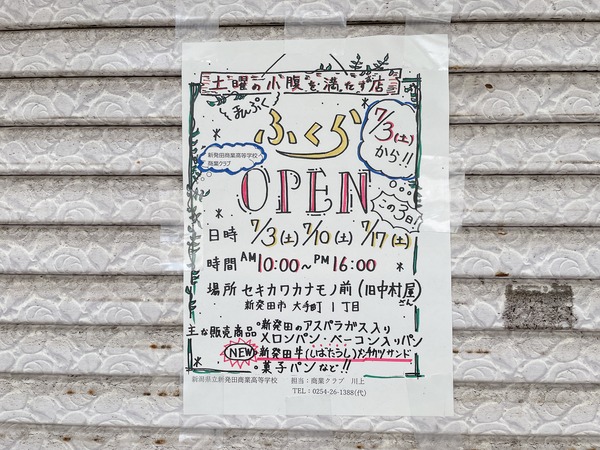 土曜の小腹を満たす店
まんぷく
ふくら
7/3(土)
から!!
新発田商業高等学校
商業クラブ
OPEN
この3日!
日時 7/3(土) 7/10(土) 7/17(土)
時間 AM10:00~PM16:00
場所 セキカワカナモノ前(旧中村屋さん)
新発田市 大手町 1丁目
主な販売商品 。新発田のアスパラガス入り
メロンパン・ベーコン入りパン
NEW 新発田牛(しばたうし)メンチカツサンド
。菓子パンなど!!
新潟県立新発田商業高等学校 担当:商業クラブ 川上
TEL:0254-26-1388(代)